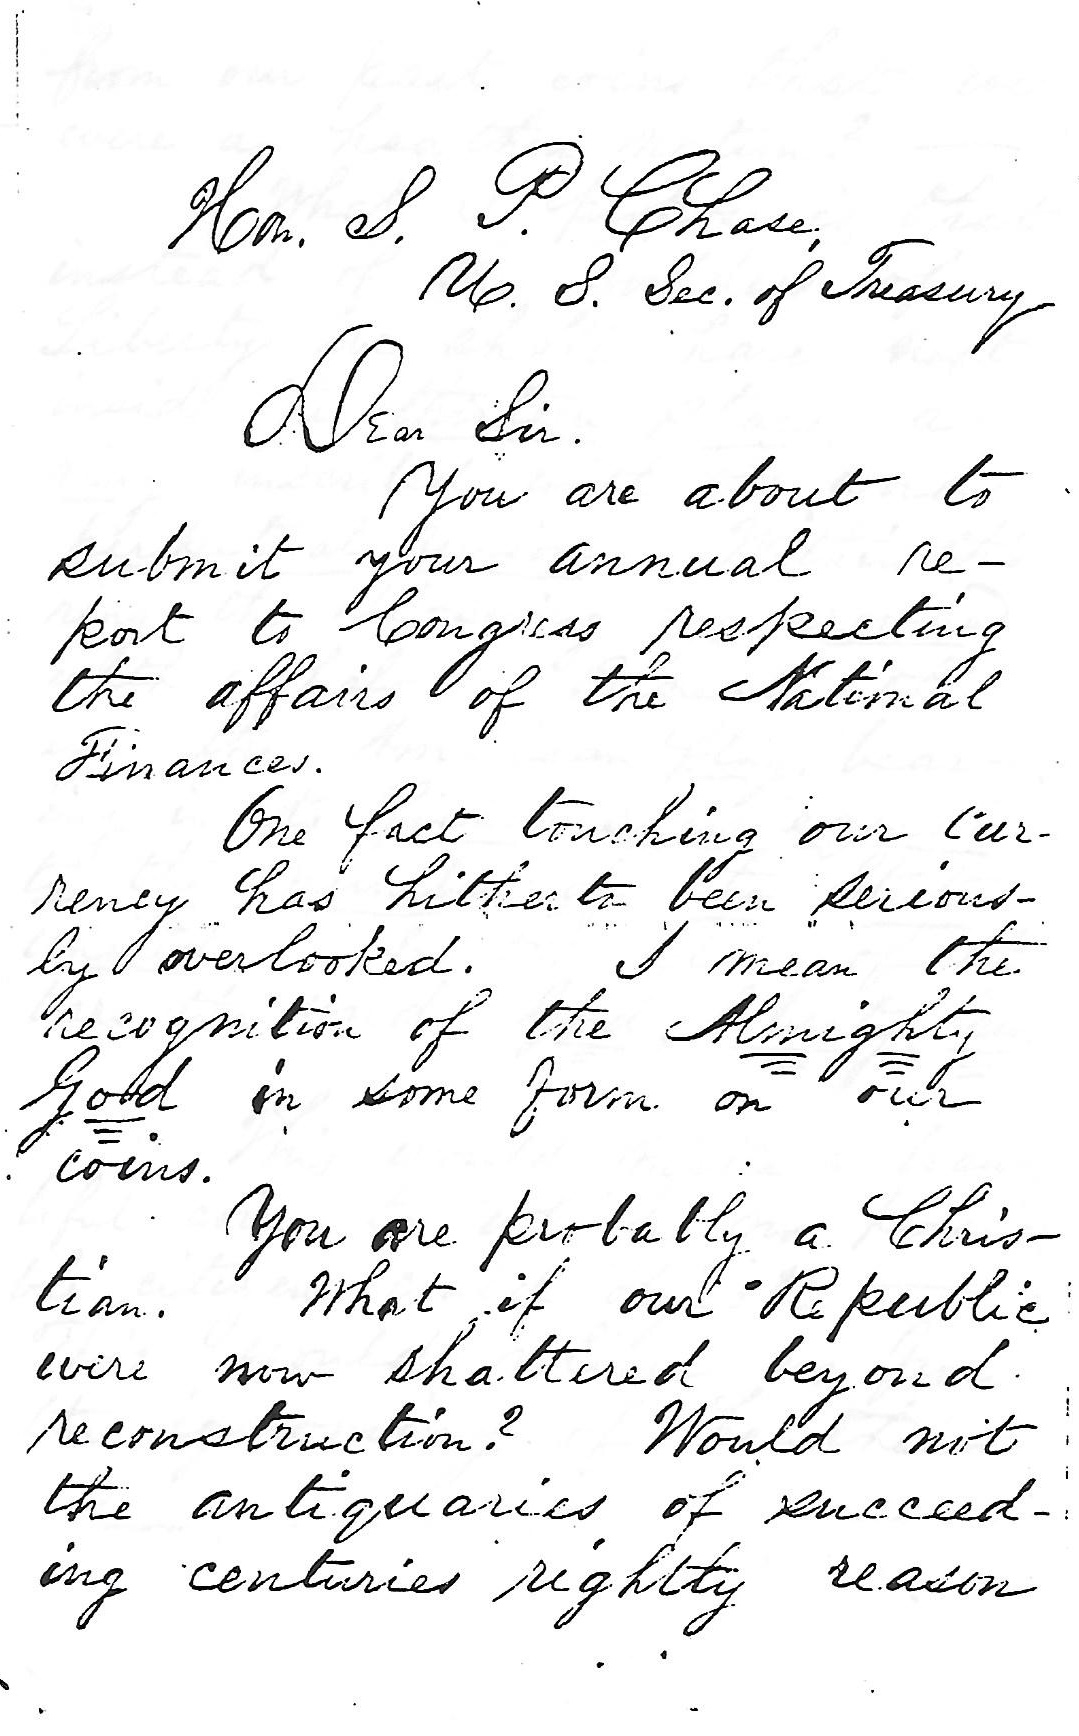 Hon. S. P. Chase,
U. S. Sec. of Treasury
Dear Sir.
You are about to
submit your annual re-
port to Congress respecting
the affairs of the National
Finances.
One fact touching our cur-
rency has hitherto been serious-
ly overlooked. I mean the
recognition of the Almighty
God in some form on our
coins.
You are probably a Chris-
tian. What if our Republic
were now shattered beyond
reconstruction? Would not
the antiquaries of succeed-
ing centuries rightly reason